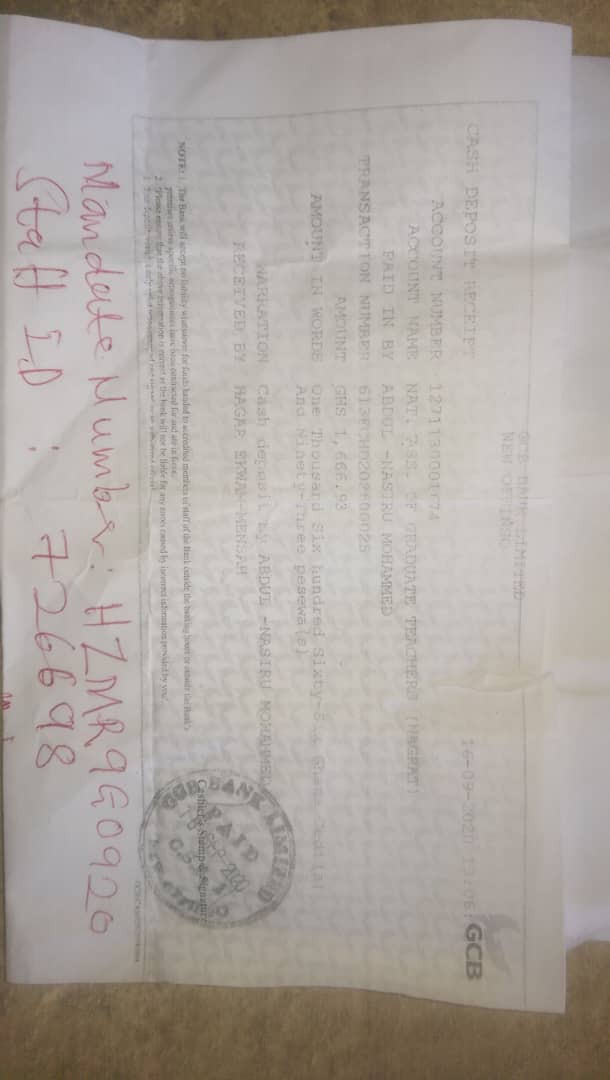 GCB BANK LIMITED
NEW OFFINSO
CASH DEPOSIT RECEIPT
16-09-2020
GCB
ACCOUNT NUMBER
ACCOUNT NAME NAT. ASS. OF GRADUATE TEACHERS (NAGRAT)
PAID IN BY ABDUL -NASIRU MOHAMMED
TRANSACTION NUMBER
AMOUNT GHS 1,666.93
AMOUNT IN WORDS One Thousand Six hundred Sixty-Six Ghana Cedi(s)
And Ninety-Three pesewa(s)
NARRATION Cash deposit by ABDUL -NASIRU MOHAMMED
RECEIVED BY HAGAR EKWAM-MENSAH
Cashier's Stamp & Signature
GCB BANK LIMITED
PAID
NOTE: 1. The Bank will accept no liability whatsoever for funds handed to accredited members of staff of the Bank outside the banking hours or outside the Bank's
premises unless specific arrangements have been contracted for and are in force.
2. Please ensure that the above information is correct as the bank will not be liable for any errors caused by incorrect information provided by you
Mandate Number: HZMR9G0920
Staff ID : 726698